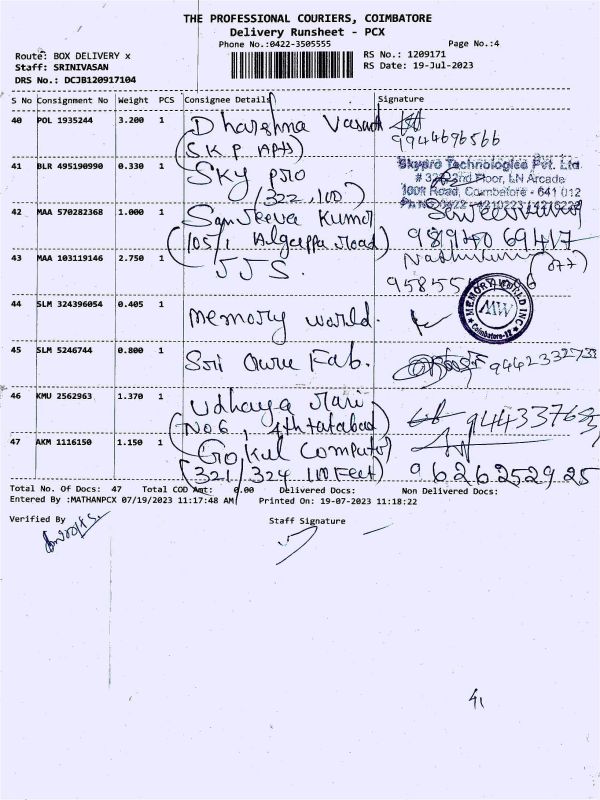 THE PROFESSIONAL COURIERS, COIMBATORE
Delivery Runsheet - PCX
Phone No.:0422-3505555
Page No.:4
Route: BOX DELIVERY x
RS No.: 1209171
Staff: SRINIVASAN
RS Date: 19-Jul-2023
DRS No.: DCJB120917104
S No Consignment No Weight PCS Consignee Details Signature
40 POL 1935244 3.200 1 Dharshna Vasanth
(SKP Apts) 9944696566
41 BLR 495190990 0.330 1 Sky pro
(322, 100')
Skypro Technologies Pvt. Ltd.
# 322 2nd Floor, LN Arcade
100ft Road, Coimbatore - 641 012
42 MAA 570282368 1.000 1 Sanjeeva Kumar
(105/1 Algappa road) 9894069417
43 MAA 103119146 2.750 1 JJS.
44 SLM 324396054 0.405 1 memory world.
MEMORY WORLD INC
MW
Coimbatore-12
45 SLM 5246744 0.800 1 Sri Guru Fab. 9442332733
46 KMU 2562963 1.370 1 Udhaya
(No 6, 4th tatabad)
47 AKM 1116150 1.150 1 Gokul Computer
(321/324 100 Feet) 9626252925
Total No. Of Docs: 47 Total COD Amt: 0.00 Delivered Docs: Non Delivered Docs:
Entered By :MATHANPCX 07/19/2023 11:17:48 AM Printed On: 19-07-2023 11:18:22
Verified By Staff Signature